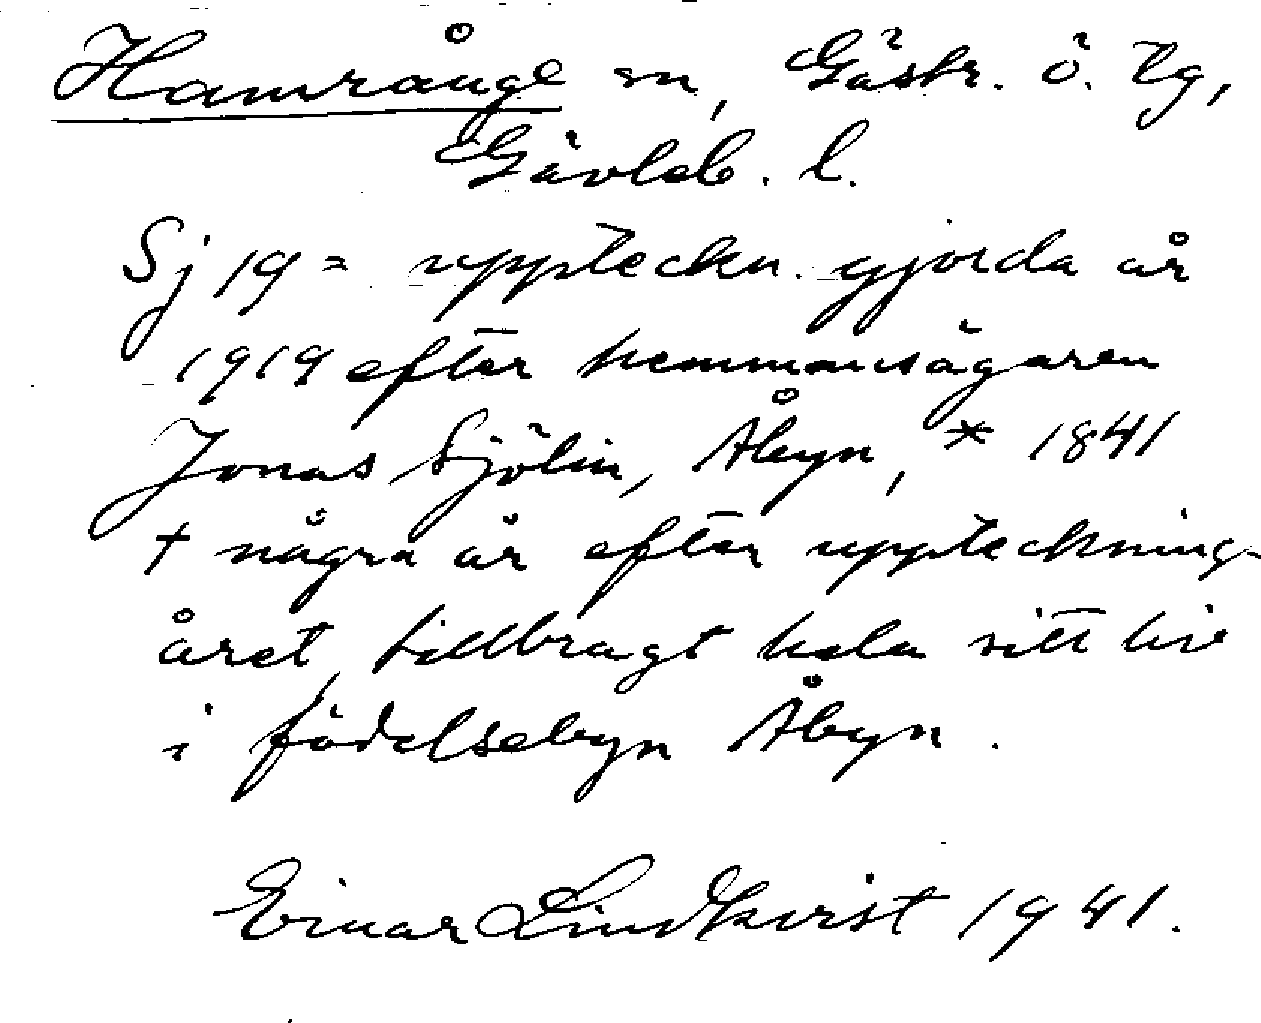 Hamrånge sn, Gästr. ö. tg,
Gävleb. l.
Sj 19 = uppteckn. gjorda år
1919 efter hemmansägaren
Jonas Sjölin, Åbyn, * 1841
† några år efter uppteckning-
året, tillbragt hela sitt liv
i födelsebyn Åbyn.
Einar Lindkvist 1941.